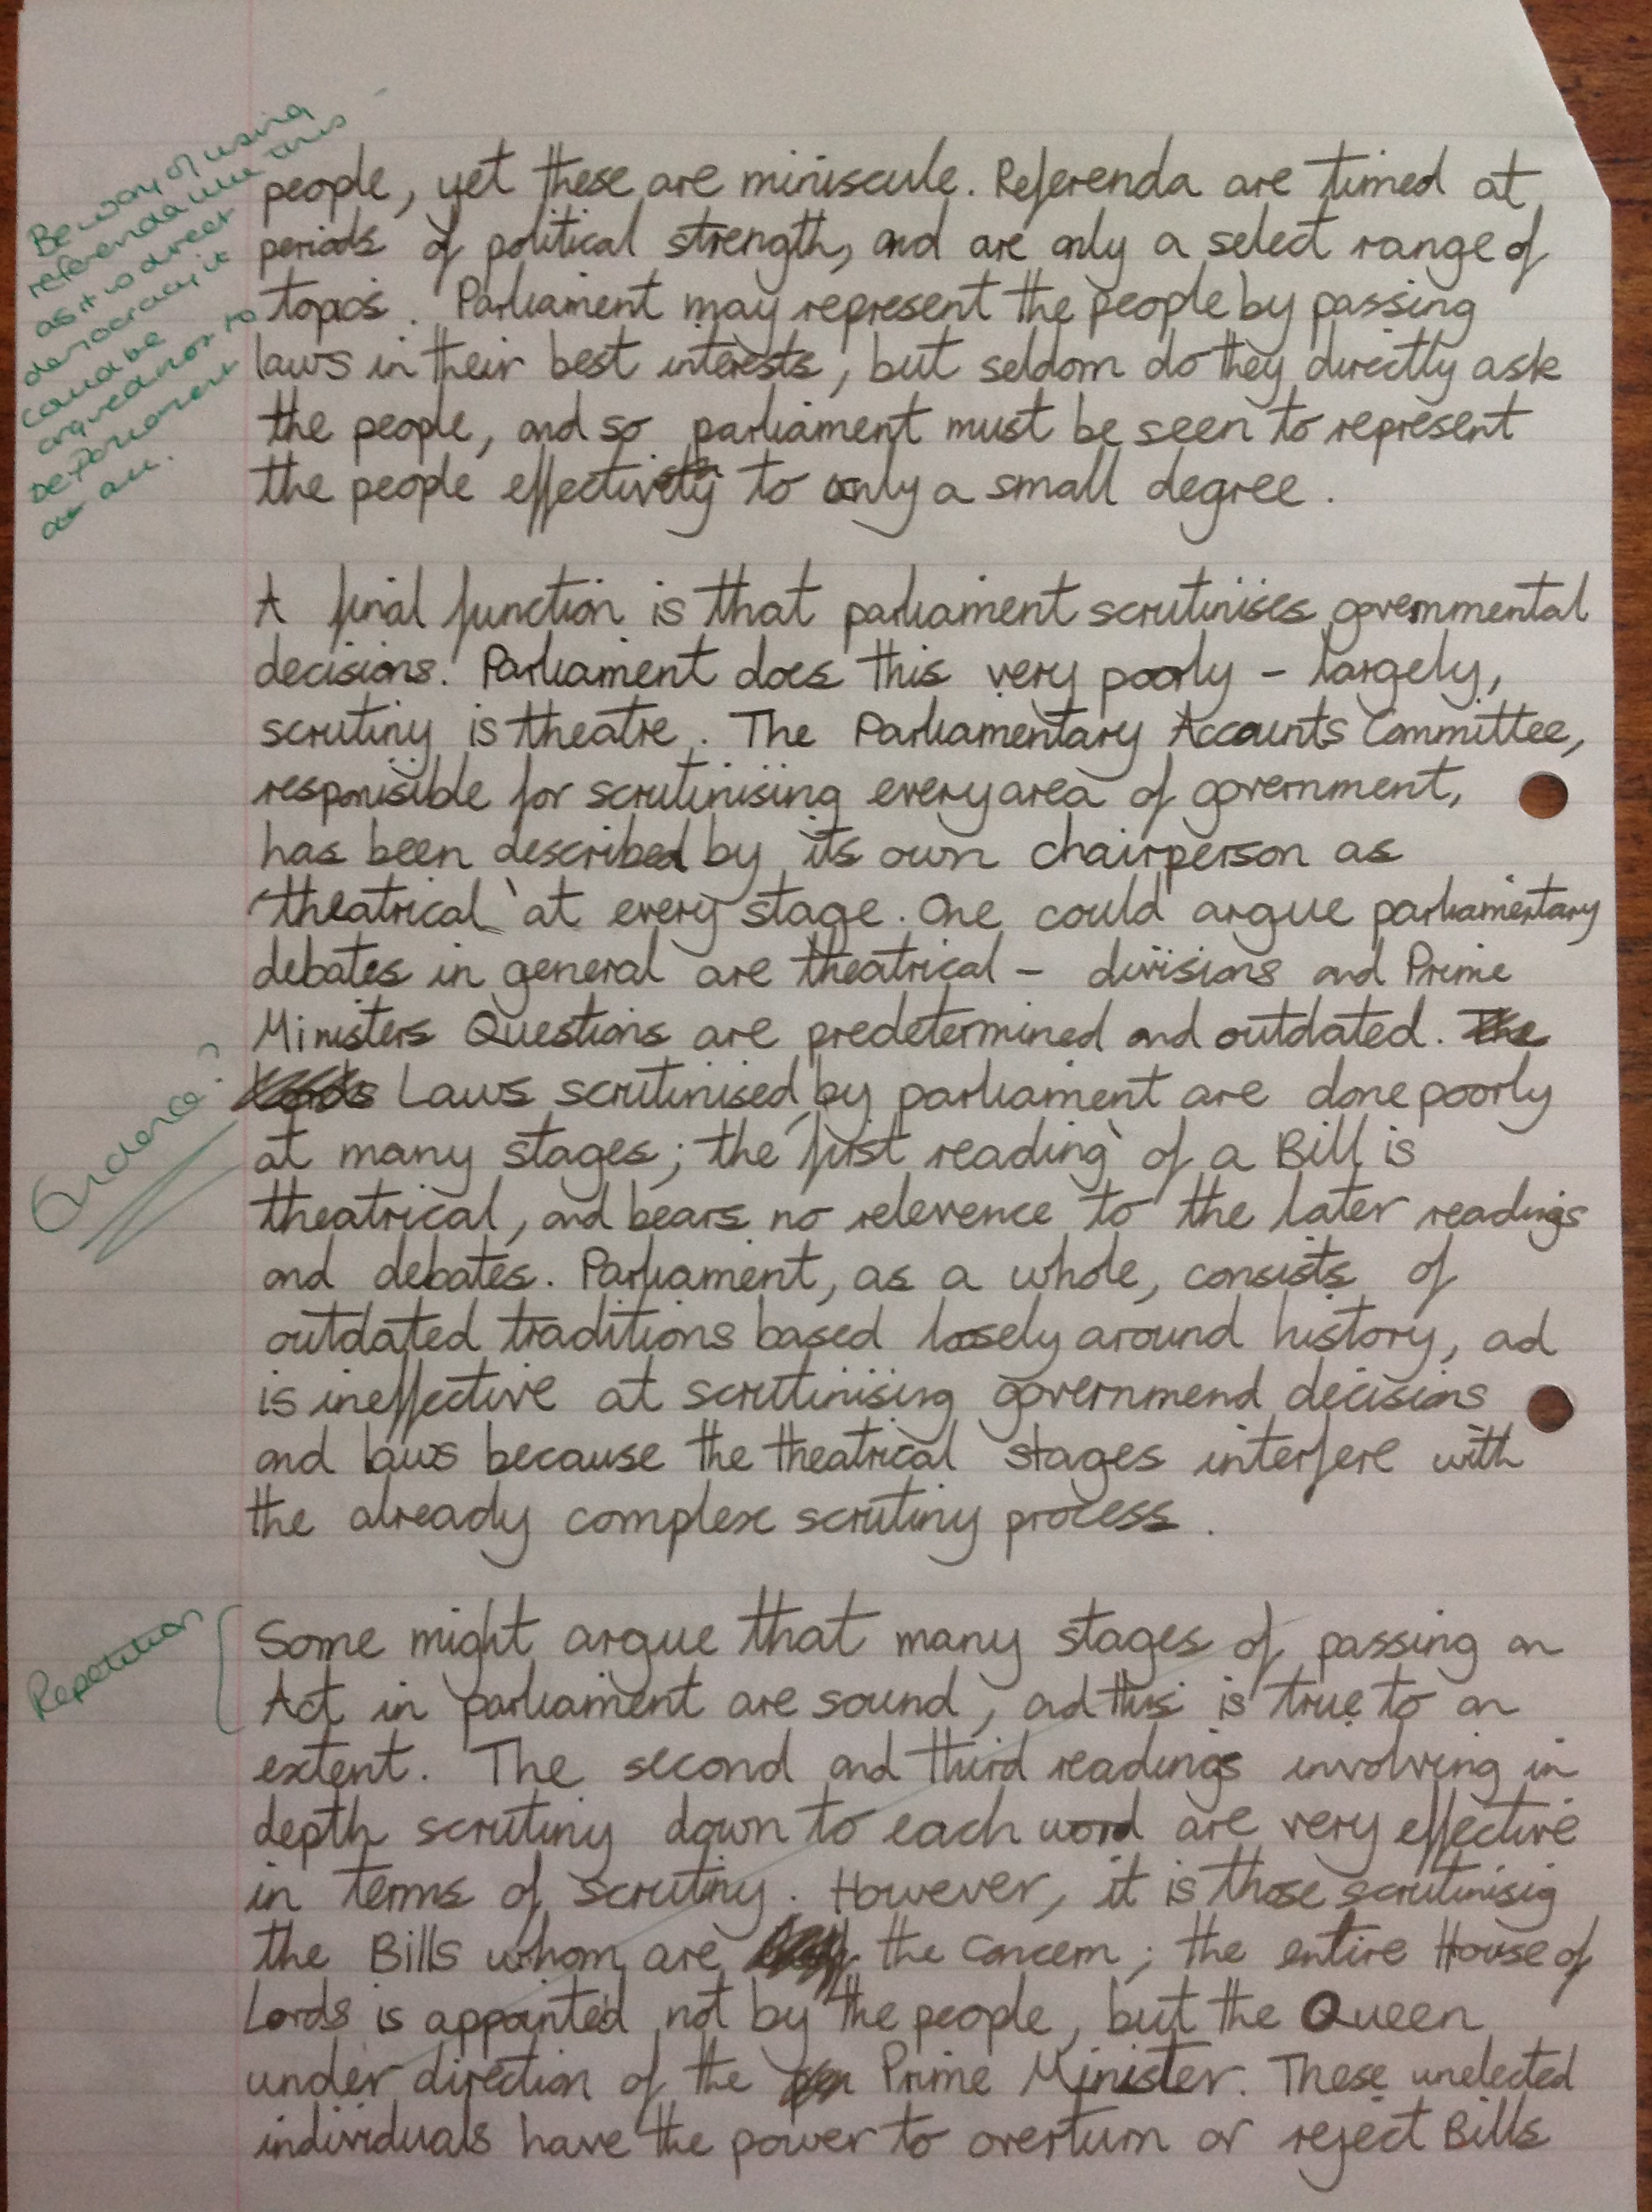 Be wary of using
referenda like this
as it is direct
democracy it
could be
argued not to
be Parliament
at all.
people, yet these are miniscule. Referenda are timed at
periods of political strength, and are only a select range of
topics. Parliament may represent the people by passing
laws in their best interests, but seldom do they directly ask
the people, and so parliament must be seen to represent
the people effectively to only a small degree.
A final function is that parliament scrutinises governmental
decisions. Parliament does this very poorly - largely,
scrutiny is theatre. The Parliamentary Accounts Committee,
responisible for scrutinising every area of government,
has been described by its own chairperson as
'theatrical' at every stage. One could argue parliamentary
debates in general are theatrical - divisions and Prime
Ministers Questions are predetermined and outdated. The
Evidence?
Lords Laws scrutinised by parliament are done poorly
at many stages; the 'first reading' of a Bill is
theatrical, and bears no relevence to the later readings
and debates. Parliament, as a whole, consists of
outdated traditions based loosely around history, ad
is ineffective at scrutinising governmend decisions
and laws because the theatrical stages interfere with
the already complex scrutiny process.
Repetition
Some might argue that many stages of passing an
Act in parliament are sound, and this is true to an
extent. The second and third readings involving in
depth scrutiny down to each word are very effective
in terms of scrutiny. However, it is those scrutinisig
the Bills whom are the concern; the entire House of
Lords is appointed not by the people, but the Queen
under direction of the Prime Minister. These unelected
individuals have the power to overturn or reject Bills